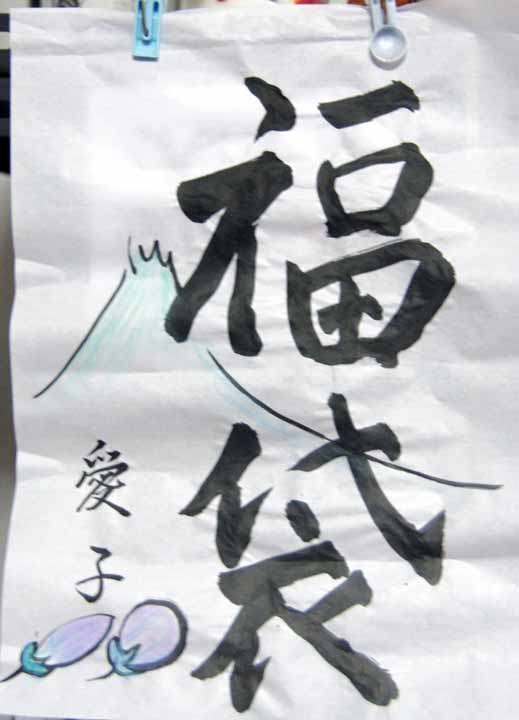 福袋
愛子